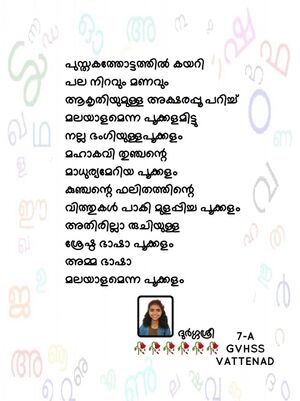 പുസ്തകത്തോട്ടത്തിൽ കയറി
പല നിറവും മണവും
ആകൃതിയുമുള്ള അക്ഷരപ്പൂ പറിച്ച്
മലയാളമെന്ന പൂക്കളമിട്ടു
നല്ല ഭംഗിയുള്ളപൂക്കളം
മഹാകവി തുഞ്ചന്റെ
മാധുര്യമേറിയ പൂക്കളം
കുഞ്ചന്റെ ഫലിതത്തിന്റെ
വിത്തുകൾ പാകി മുളപ്പിച്ച പൂക്കളം
അതിരില്ലാ രുചിയുള്ള
ശ്രേഷ്ഠ ഭാഷാ പൂക്കളം
അമ്മ ഭാഷാ
മലയാളമെന്ന പൂക്കളം
ദുർഗ്ഗശ്രീ
7-A
GVHSS
VATTENAD